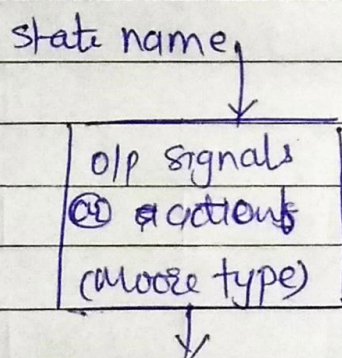 state name
o/p signals
(or) actions
(Moore type)